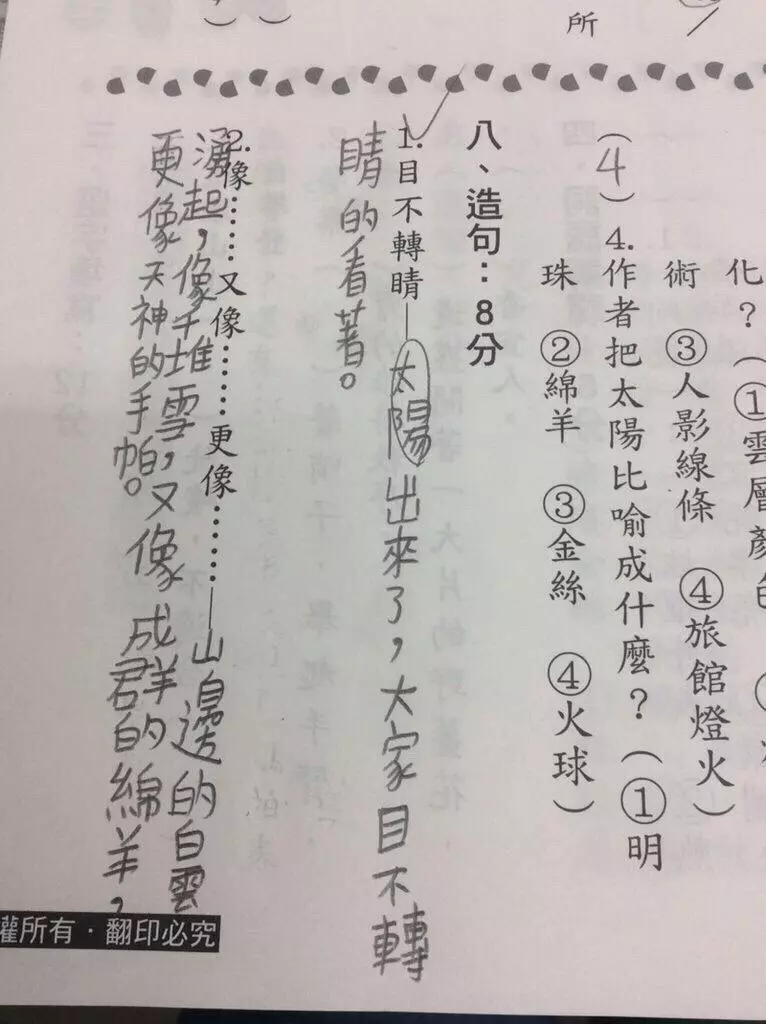 所
化？（①雲層顏色
術 ③人影線條 ④旅館燈火）
（4）4.作者把太陽比喻成什麼？（①明
珠 ②綿羊 ③金絲 ④火球）
八、造句：8分
1.目不轉睛—太陽出來了，大家目不轉
睛的看著。
2.像……又像……更像……—山邊的白雲
湧起，像千堆雪，又像成群的綿羊，
更像天神的手帕。
權所有．翻印必究